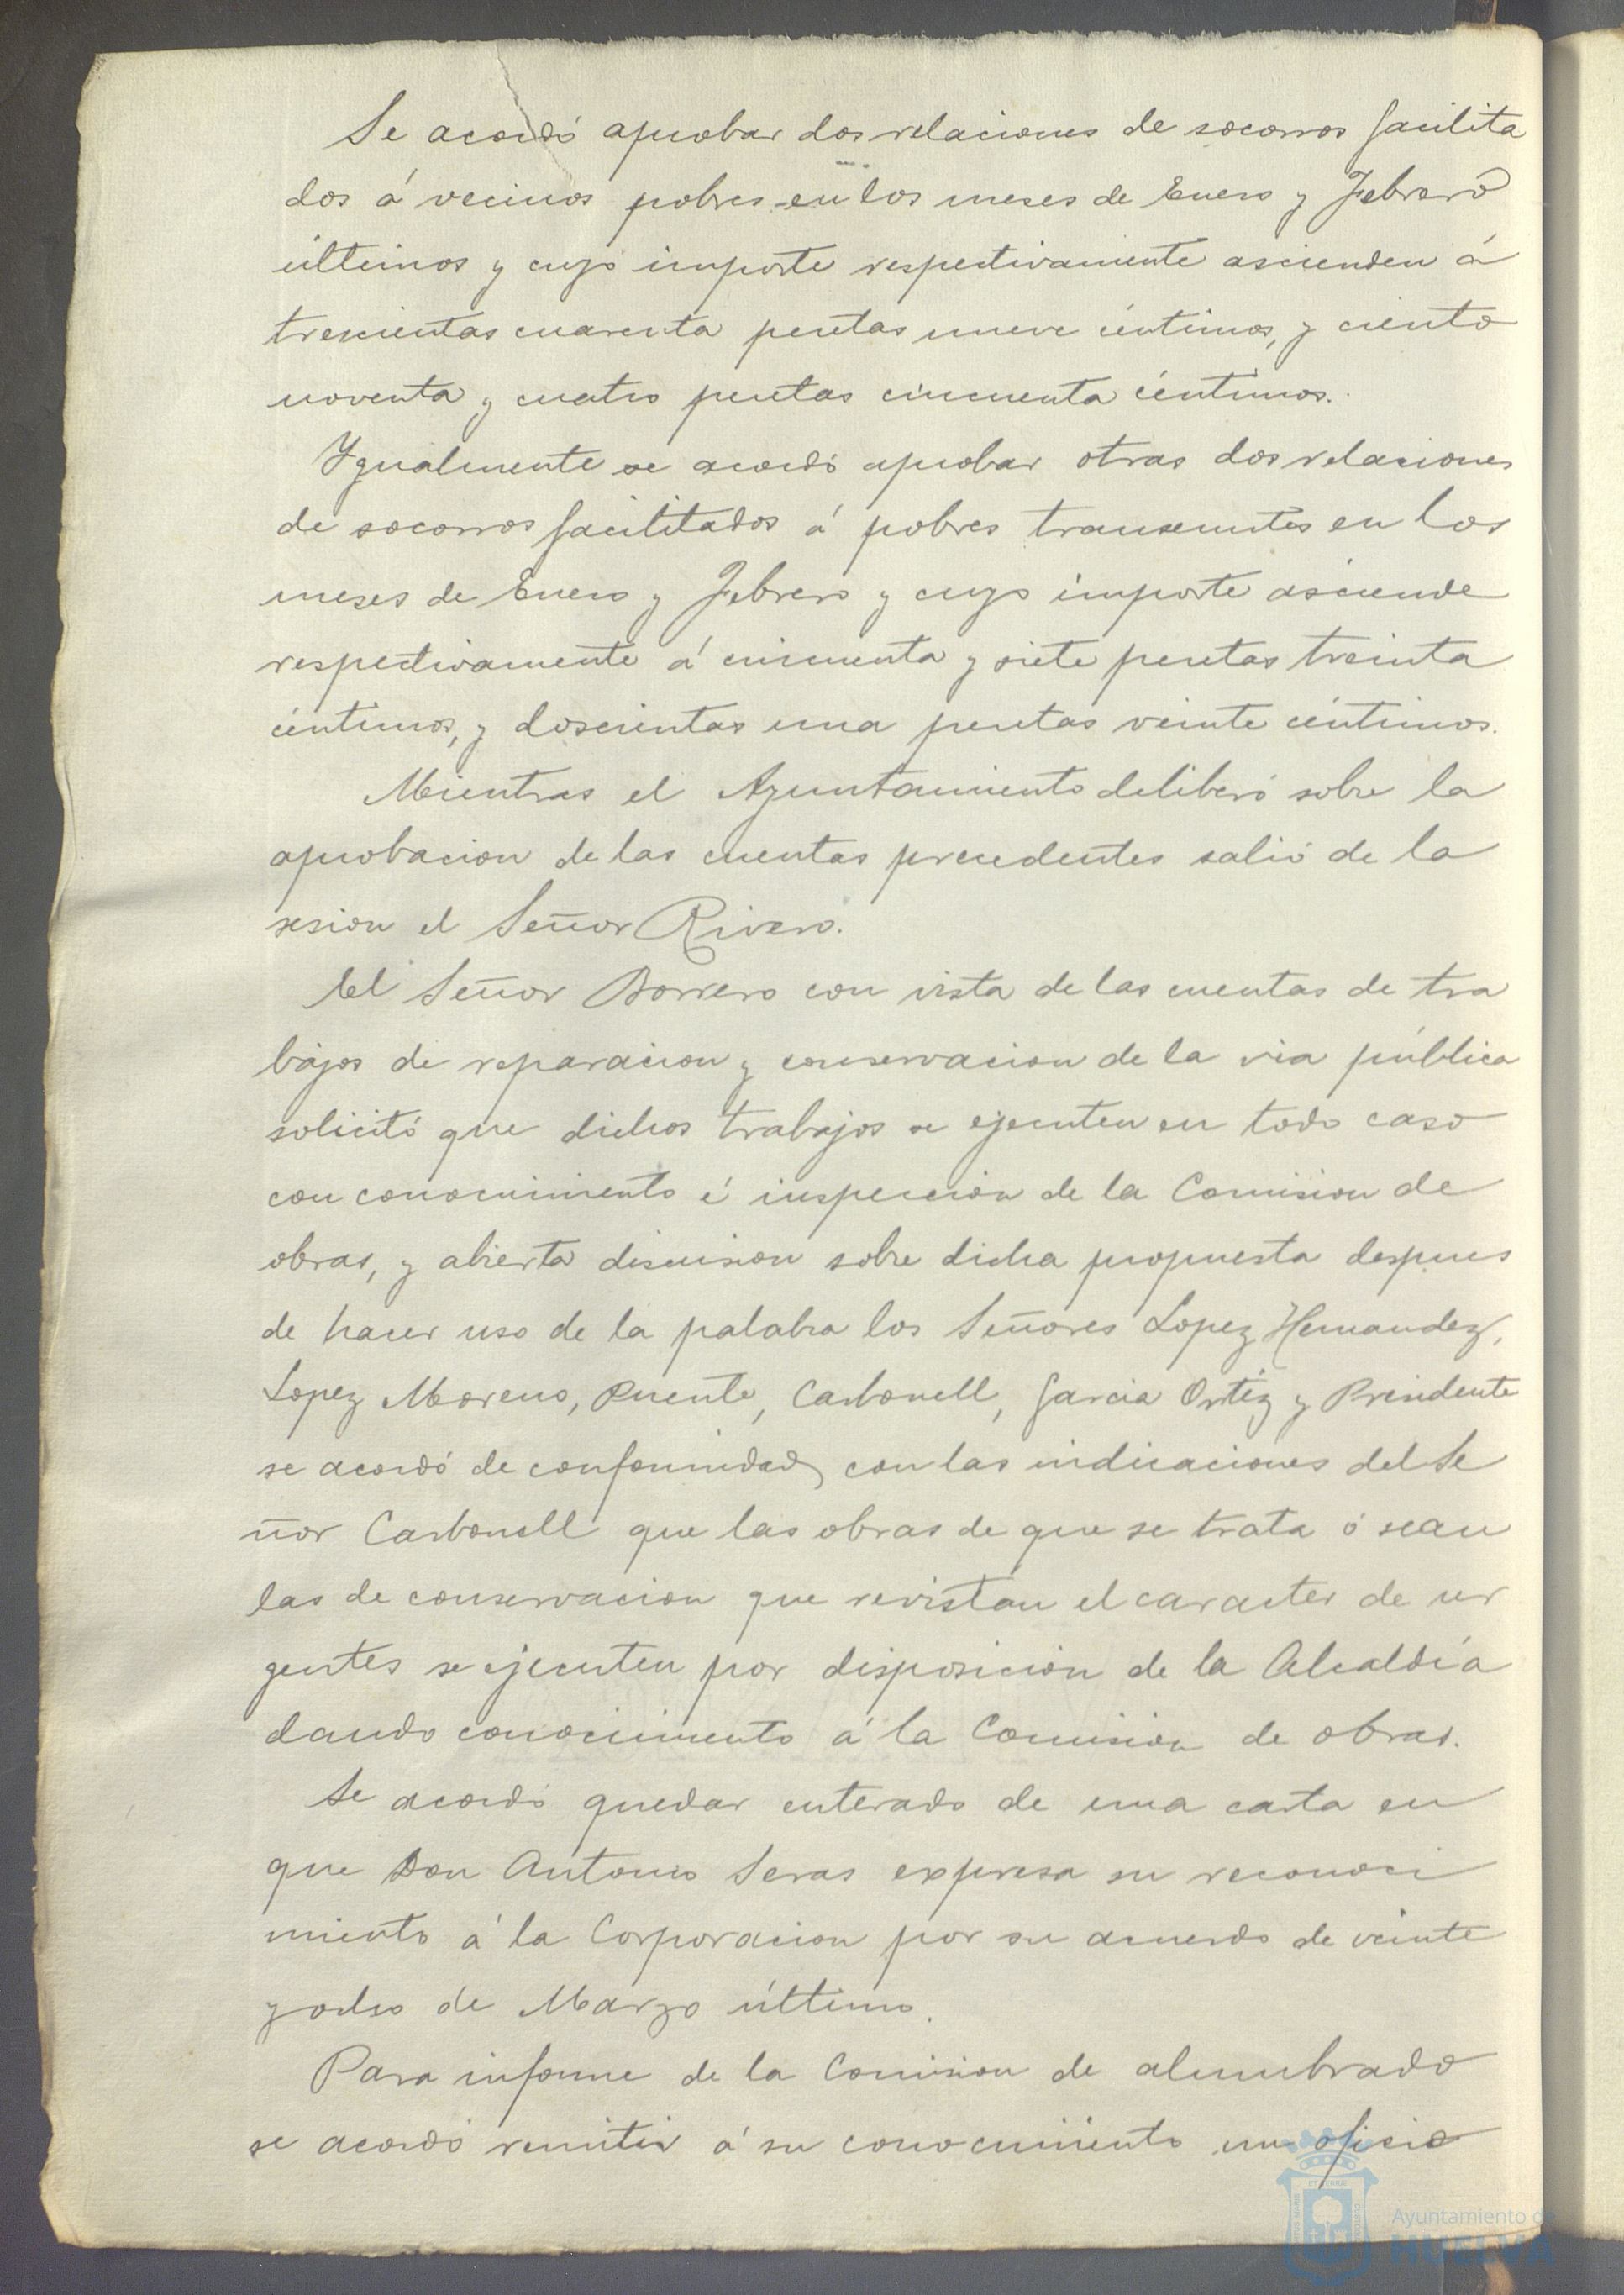 Se acordó aprobar dos relaciones de socorros facilita
dos á vecinos pobres en los meses de Enero y Febrero
últimos y cuyo importe respectivamente ascienden á
trescientas cuarenta pesetas nueve céntimos, y ciento
noventa y cuatro pesetas cincuenta céntimos.
Ygualmente se acordó aprobar otras dos relaciones
de socorros facilitados á pobres transeuntes en los
meses de Enero y Febrero y cuyo importe asciende
respectivamente á cincuenta y siete pesetas treinta
céntimos, y doscientas una pesetas veinte céntimos.
Mientras el Ayuntamiento deliberó sobre la
aprobacion de las cuentas precedentes salió de la
sesion el Señor Rivero.
El Señor Borrero con vista de las cuentas de tra
bajos de reparacion y conservacion de la via pública
solicitó que dichos trabajos se ejecuten en todo caso
con conocimiento é inspeccion de la Comision de
obras, y abierta discusion sobre dicha propuesta despues
de hacer uso de la palabra los Señores Lopez Hernandez,
Lopez Moreno, Puente, Carbonell, Garcia Ortiz y Presidente
se acordó de conformidad con las indicaciones del Se
ñor Carbonell que las obras de que se trata ó sean
las de conservacion que revistan el caracter de ur
gentes se ejecuten por disposicion de la Alcaldía
dando conocimiento á la Comision de obras.
Se acordó quedar enterado de una carta en
que Don Antonio Seras expresa su reconoci
miento á la Corporacion por su acuerdo de veinte
y ocho de Marzo último.
Para informe de la Comision de alumbrado
se acordó remitir á su conocimiento un oficio
Ayuntamiento de
HUELVA